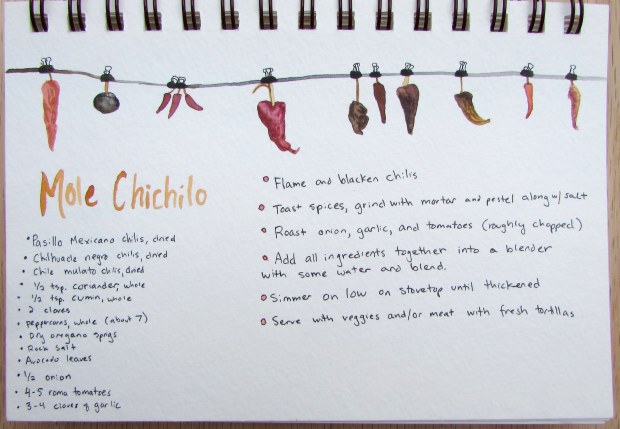 Mole Chichilo
Pasillo Mexicano chilis, dried
Chilhuacle negro chilis, dried
Chile mulato chilis, dried
1/2 tsp. coriander, whole
1/2 tsp. cumin, whole
2 cloves
peppercorns, whole (about 7)
Dry oregano sprigs
Rock salt
Avocado leaves
1/2 onion
4-5 roma tomatoes
3-4 cloves of garlic
Flame and blacken chilis
Toast spices, grind with mortar and pestel along w/ salt
Roast onion, garlic, and tomatoes (roughly chopped)
Add all ingredients together into a blender
with some water and blend.
Simmer on low on stovetop until thickened
Serve with veggies and/or meat with fresh tortillas